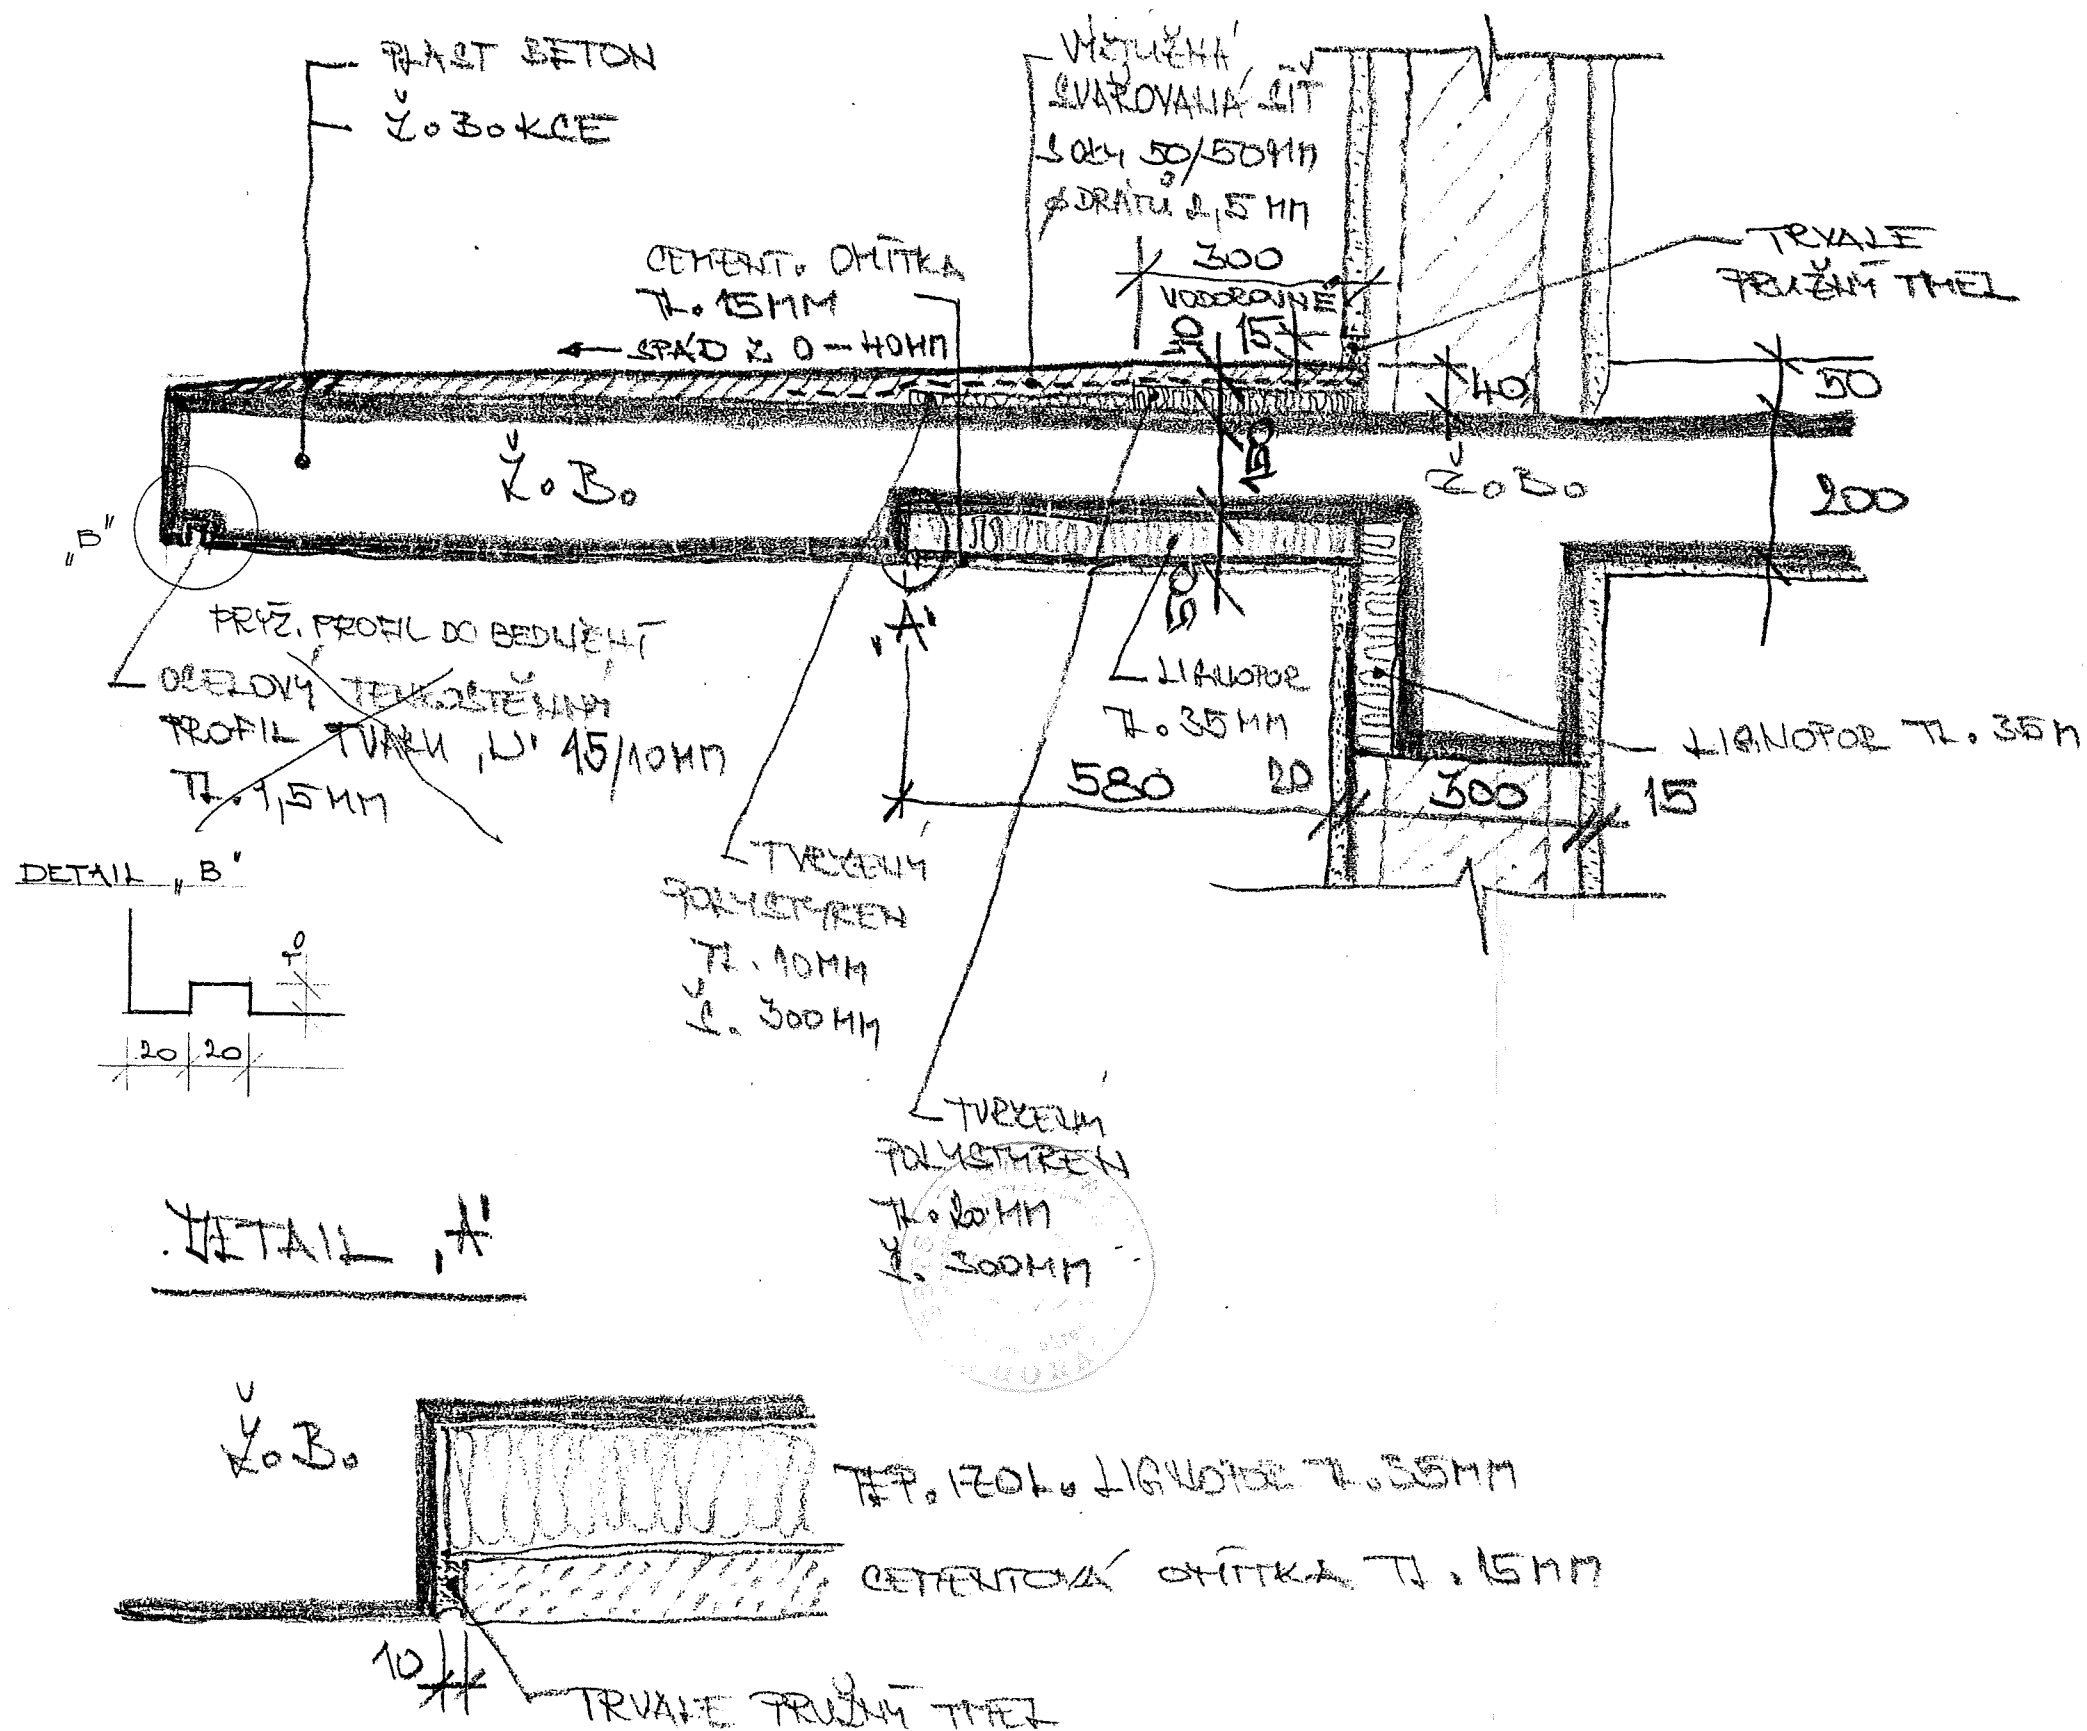 PLAST BETON
Ž.B. KCE
VÝZTUŽNÁ
SVAŘOVANÁ SÍŤ
S OKY 50/50MM
ø DRÁTŮ 2,5 MM
300
VODOROVNĚ
10
15
CEMENT. OMÍTKA
TL. 15MM
SPÁD Z 0 - 40MM
TRVALE
PRUŽNÝ TMEL
40
50
200
150
50
Ž.B.
Ž.B.
„B"
„A"
PRYŽ. PROFIL DO BEDNĚNÍ
OCELOVÝ TENKOSTĚNNÝ
PROFIL TVARU „U" 15/10MM
TL. 1,5MM
LIGNOPOR
TL. 35MM
LIGNOPOR TL. 35M
580
20
300
15
TVRZENÝ
POLYSTYREN
TL. 10MM
Š. 300MM
DETAIL „B"
10
20
20
TVRZENÝ
POLYSTYREN
TL. 20MM
Š. 300MM
DETAIL „A"
Ž.B.
TEP. IZOL. LIGNOPOR TL. 35MM
CEMENTOVÁ OMÍTKA TL. 15MM
10
TRVALE PRUŽNÝ TMEL